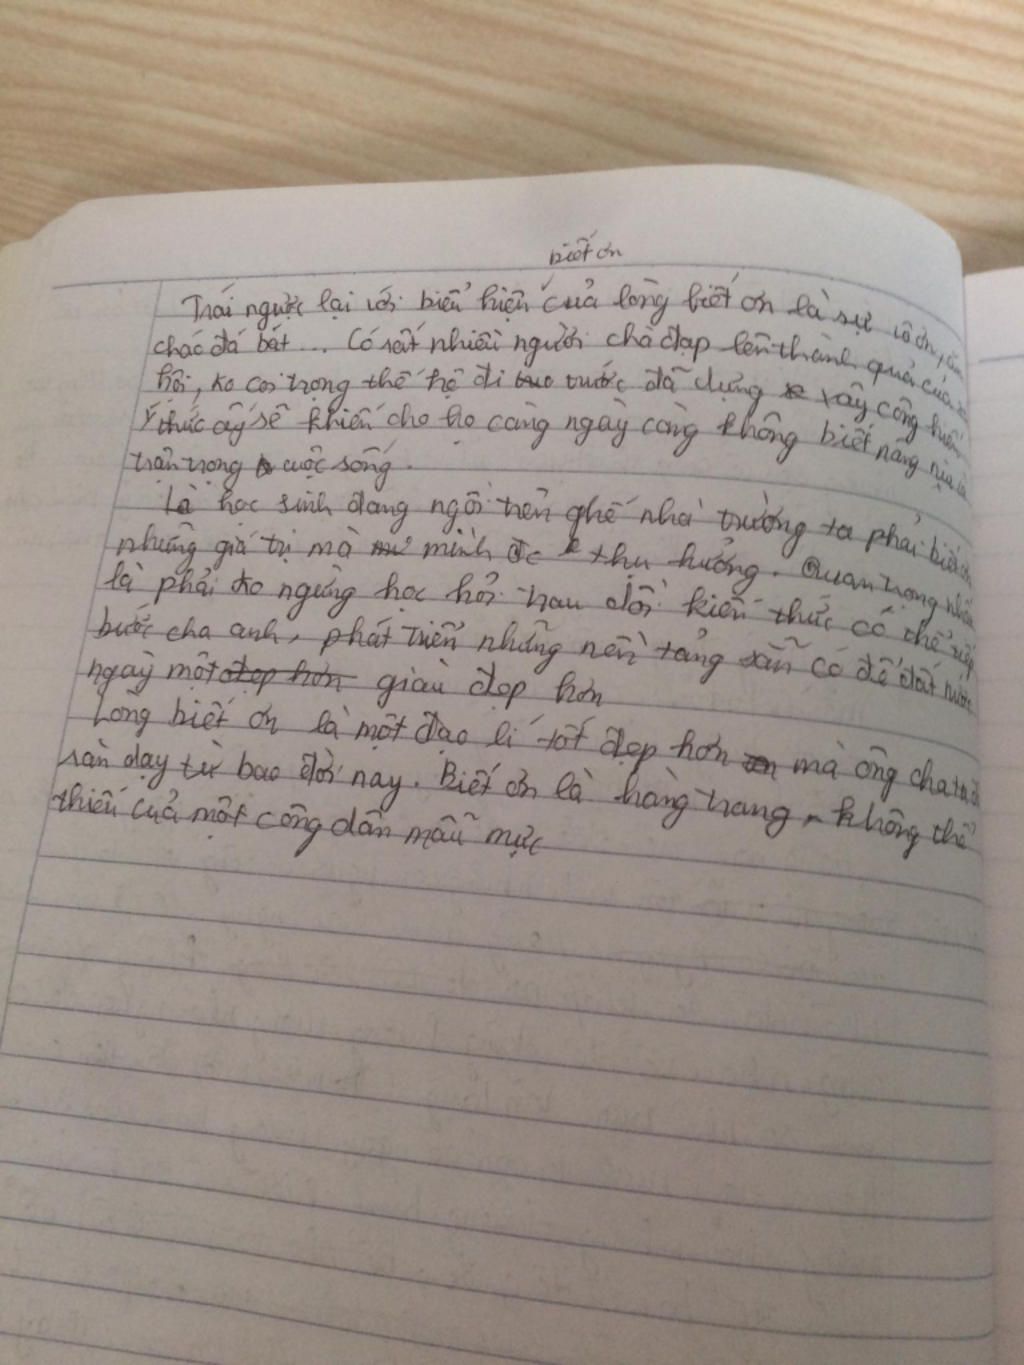 biết ơn
Trái ngược lại với biểu hiện của lòng biết ơn là sự vô ơn, ăn
cháo đá bát ... Có rất nhiều người chà đạp lên thành quả của
hôi, ko coi trọng thế hệ đi trước đã dựng xây cống hiến
Ý thức ấy sẽ khiến cho họ càng ngày càng không biết nâng niu
trận trọng cuộc sống.
Là học sinh đang ngồi trên ghế nhà trường ta phải biết ơn
những giá trị mà mình đc thụ hưởng. Quan trọng nhất
là phải ko ngừng học hỏi trau dồi kiến thức có thể tiếp
bước cha anh, phát triển những nền tảng sẵn có để đất nước
ngày một giàu đẹp hơn
Lòng biết ơn là một đạo lí tốt đẹp hơn mà ông cha ta
răn dạy từ bao đời nay. Biết ơn là hàng trang không thể
thiếu của một công dân mẫu mực